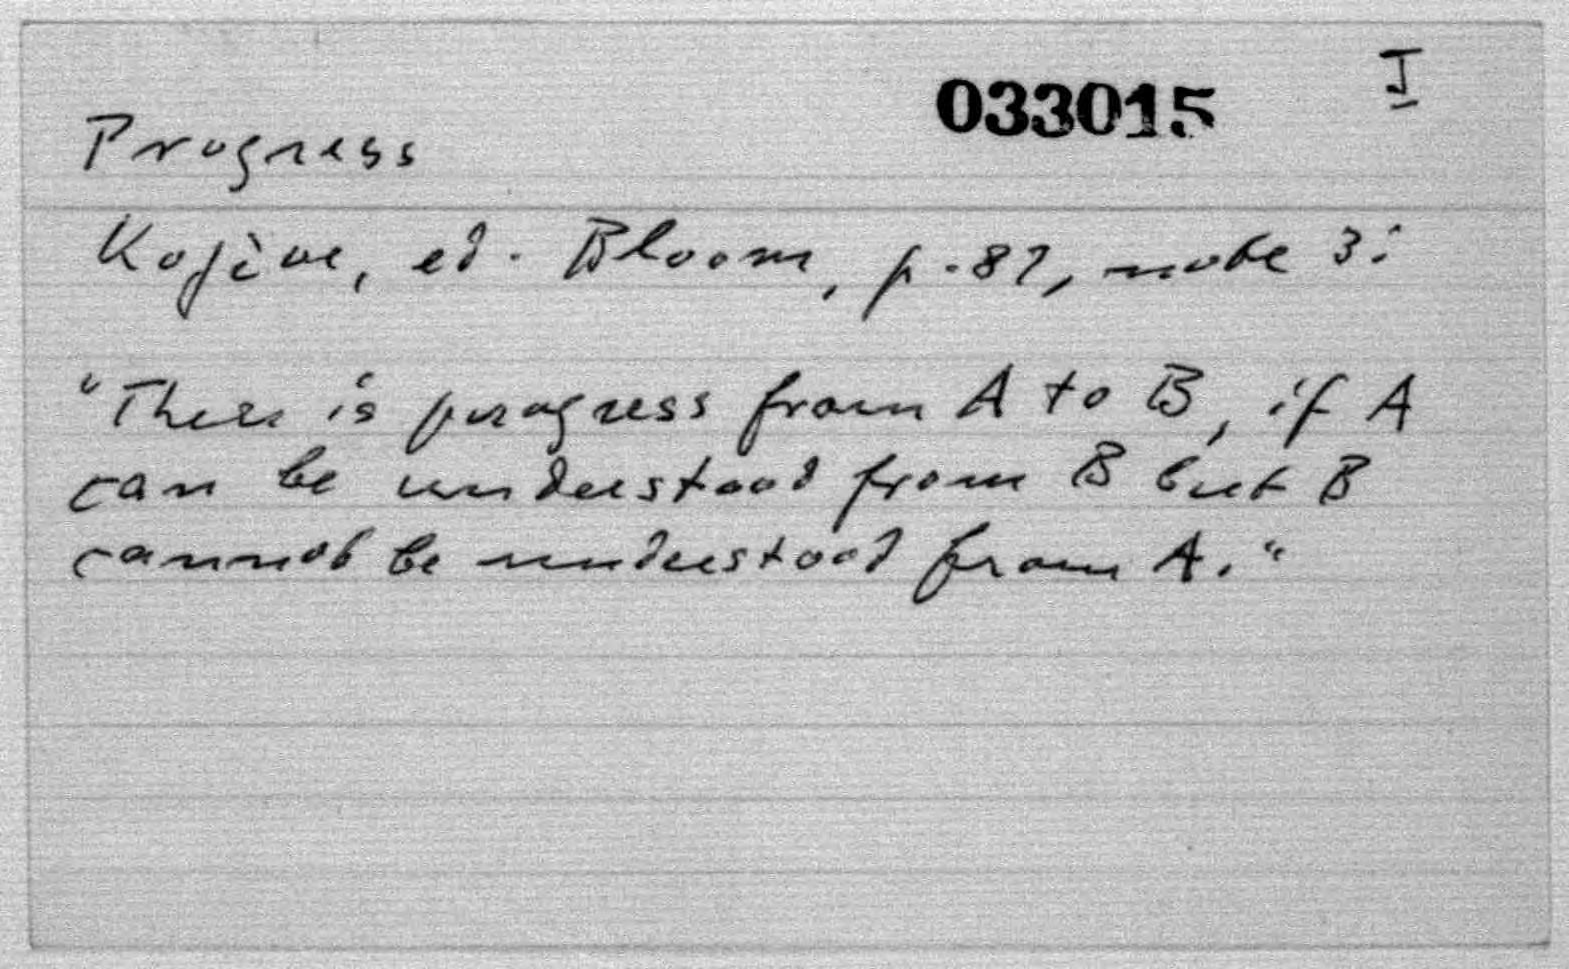 033015 I
Progress
Kojève, ed. Bloom, p. 87, note 3:
"There is progress from A to B, if A
can be understood from B but B
cannot be understood from A."